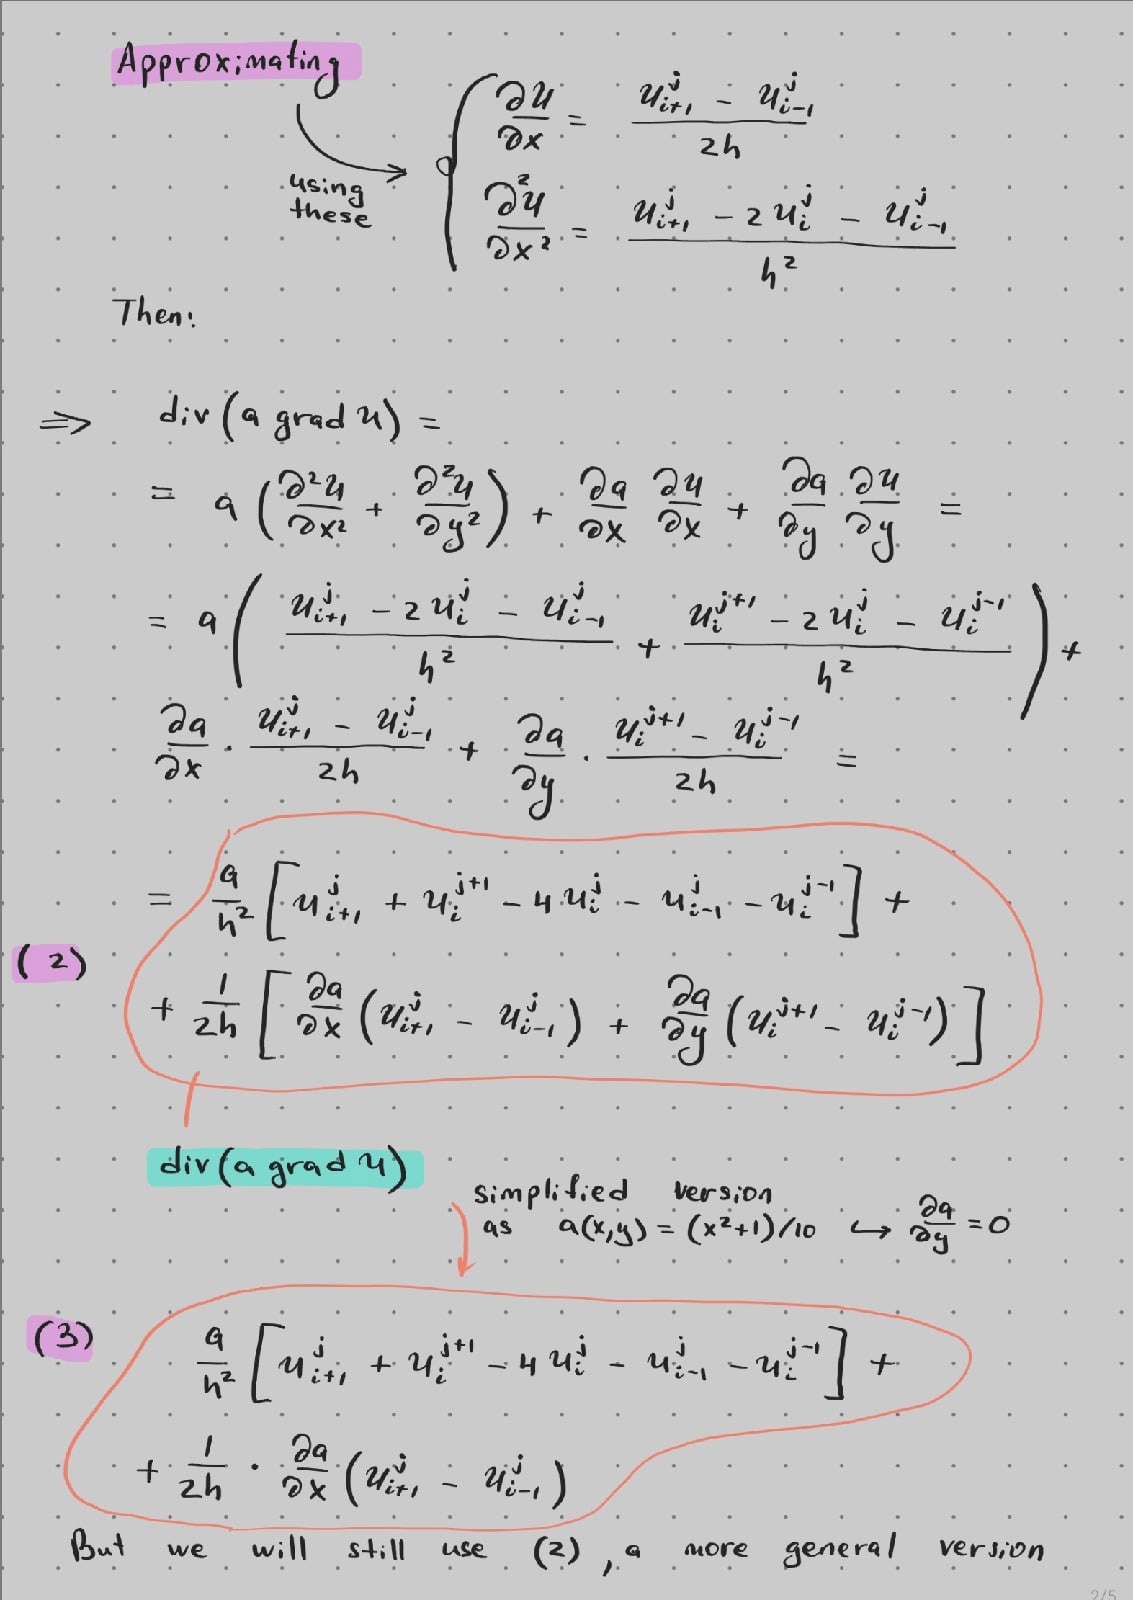 Approximating
using these
∂u/∂x = (u_{i+1}^j - u_{i-1}^j) / 2h
∂²u/∂x² = (u_{i+1}^j - 2u_i^j - u_{i-1}^j) / h²
Then:
⇒ div(a grad u) =
= a(∂²u/∂x² + ∂²u/∂y²) + ∂a/∂x ∂u/∂x + ∂a/∂y ∂u/∂y =
= a((u_{i+1}^j - 2u_i^j - u_{i-1}^j)/h² + (u_i^{j+1} - 2u_i^j - u_i^{j-1})/h²) +
∂a/∂x · (u_{i+1}^j - u_{i-1}^j)/2h + ∂a/∂y · (u_i^{j+1} - u_i^{j-1})/2h =
= a/h² [u_{i+1}^j + u_i^{j+1} - 4u_i^j - u_{i-1}^j - u_i^{j-1}] +
(2)
+ 1/2h [∂a/∂x (u_{i+1}^j - u_{i-1}^j) + ∂a/∂y (u_i^{j+1} - u_i^{j-1})]
div(a grad u)
simplified version
as a(x,y) = (x²+1)/10 ↪ ∂a/∂y = 0
(3)
a/h² [u_{i+1}^j + u_i^{j+1} - 4u_i^j - u_{i-1}^j - u_i^{j-1}] +
+ 1/2h · ∂a/∂x (u_{i+1}^j - u_{i-1}^j)
But we will still use (2), a more general version
2/5